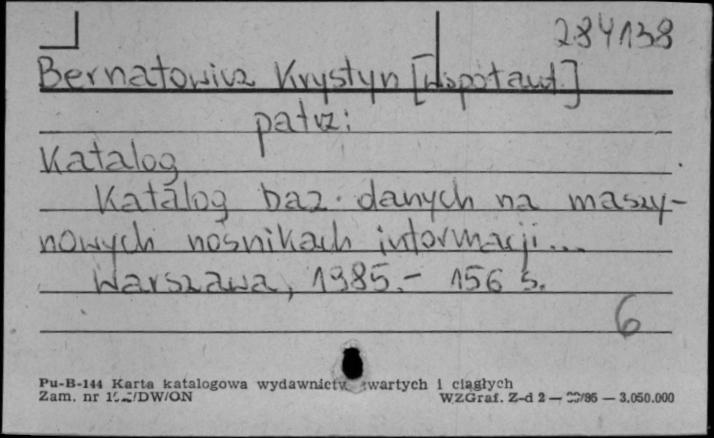 284138
Bernatowicz Krystyn [współaut.]
patrz:
Katalog
Katalog baz danych na maszy-
nowych nośnikach informacji...
Warszawa, 1985.- 156 s.
6
Pu-B-144 Karta katalogowa wydawnictw zwartych i ciągłych
Zam. nr /DW/ON WZGraf. Z-d 2 — /86 — 3.050.000